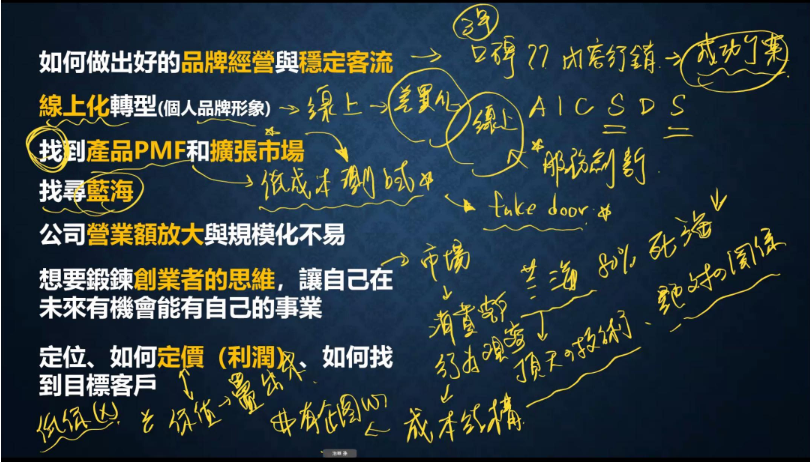 如何做出好的品牌經營與穩定客流
口碑?? 內容行銷 → 成功個案
線上化轉型(個人品牌形象) → 線上 → 差異化
線上 AICSDS
找到產品PMF和擴張市場
服務創新
找尋藍海
低成本測試
fake door
公司營業額放大與規模化不易
想要鍛鍊創業者的思維，讓自己在
未來有機會能有自己的事業
市場
藍海 80% 死海
消費者
行為觀察
頂天の技術、絕對の關係
定位、如何定價（利潤）、如何找
到目標客戶
低價(X)
成本結構